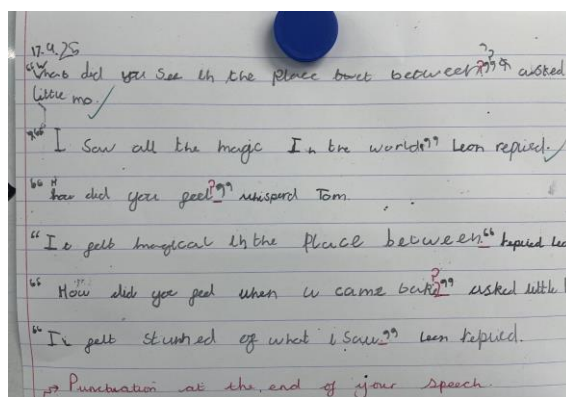 17.9.25
"What did you see in the place between?" asked
little mo.
"I saw all the magic In the world." Leon repied.
"How did you feel?" whisperd Tom.
"It felt magical in the place between." repied Leo
"How did you feel when u came back?" asked little
"It felt stunned of what i saw." Leon repied.
→ Punctuation at the end of your speech.